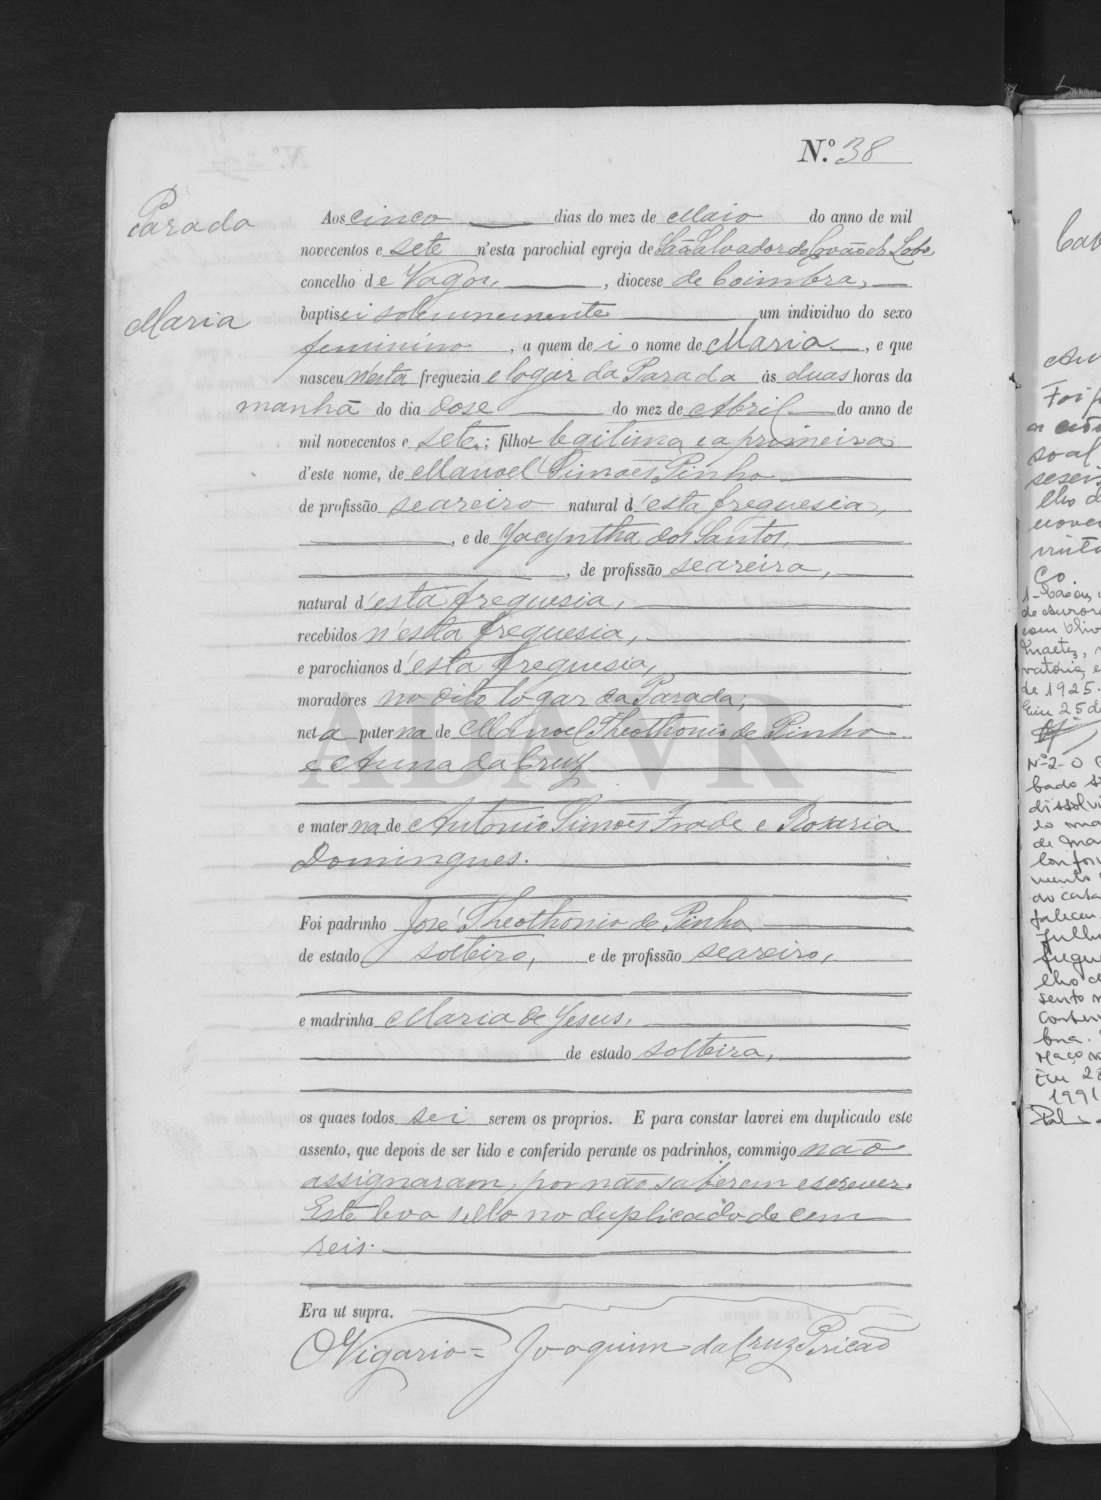 N.º 38
Parada
Aos cinco dias do mez de Maio do anno de mil
novecentos e sete n'esta parochial egreja de São Salvador do Covão do Lobo,
concelho de Vagos, , diocese de Coimbra,
Maria
baptisei solemnemente um individuo do sexo
feminino , a quem dei o nome de Maria , e que
nasceu n'esta freguezia e logar da Parada ás duas horas da
manhã do dia dose do mez de Abril do anno de
mil novecentos e sete ; filha legitima e a primeira
d'este nome, de Manoel Simões Pinho
de profissão seareiro natural d'esta freguesia,
, e de Jacyntha dos Santos,
, de profissão seareira,
natural d'esta freguesia,
recebidos n'esta freguesia,
e parochianos d'esta freguesia,
moradores no dito logar da Parada;
neta paterna de Manoel Theothonio de Pinho
e Anna da Cruz
ADAVR
e materna de Antonio Simões Frade e Rosaria
Domingues.
Foi padrinho José Theothonio de Pinho
de estado solteiro, e de profissão seareiro,
e madrinha Maria de Jesus,
de estado solteira,
os quaes todos sei serem os proprios. E para constar lavrei em duplicado este
assento, que depois de ser lido e conferido perante os padrinhos, commigo não
assignaram, por não saberem escrever.
Este leva sello no duplicado de cem
reis.
Era ut supra.
O Vigario = Joaquim da Cruz Pericão
Foi
soal
lho d
noven
de 1925.
Em 25 d
Nº 2 - O
dissolvi
de Ma
confor
mento
do casa
faleceu
julho
lho de
sento n
Conser
Maço n
Em 28
1991